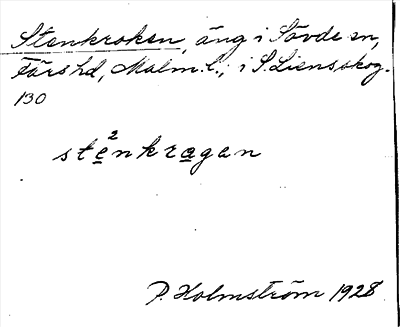 Stenkroken, äng i Sövde sn,
Färs hd, Malm. l., i S. Liens skog.
130
2
stenkragan
P. Holmström 1928